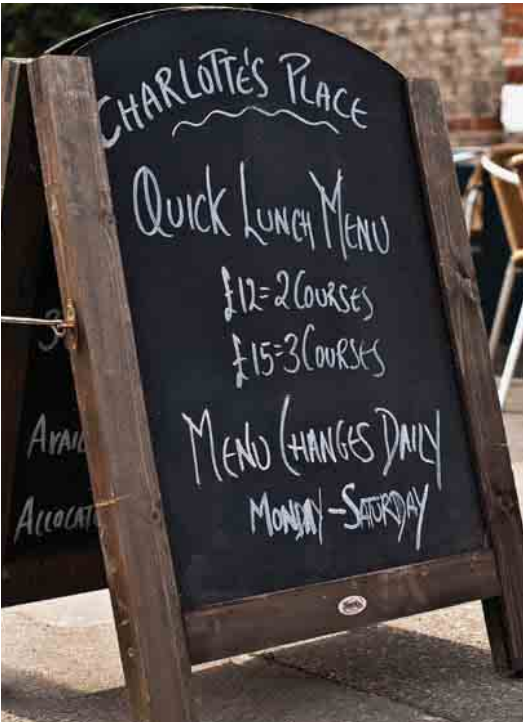 CHARLOTTE'S PLACE
QUICK LUNCH MENU
£12=2 COURSES
£15=3 COURSES
MENU CHANGES DAILY
MONDAY-SATURDAY